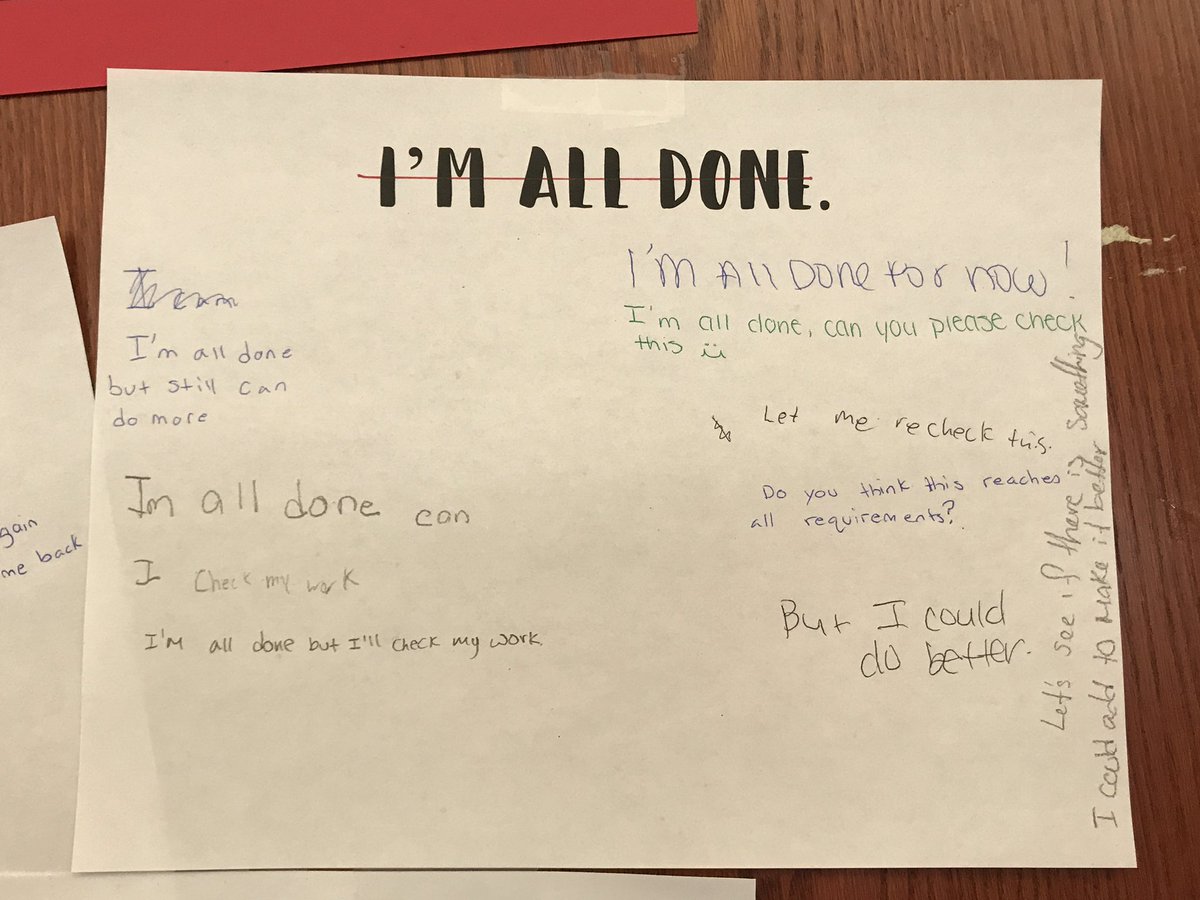 I'M ALL DONE.
I'm all done
but still can
do more
Im all done can
I check my work
I'm all done but I'll check my work.
I'M All DONE for now!
I'm all done, can you please check
this
Let me recheck this.
Do you think this reaches
all requirements?
But I could
do better.
Let's see if there is something
I could add to make it better
gain
me back